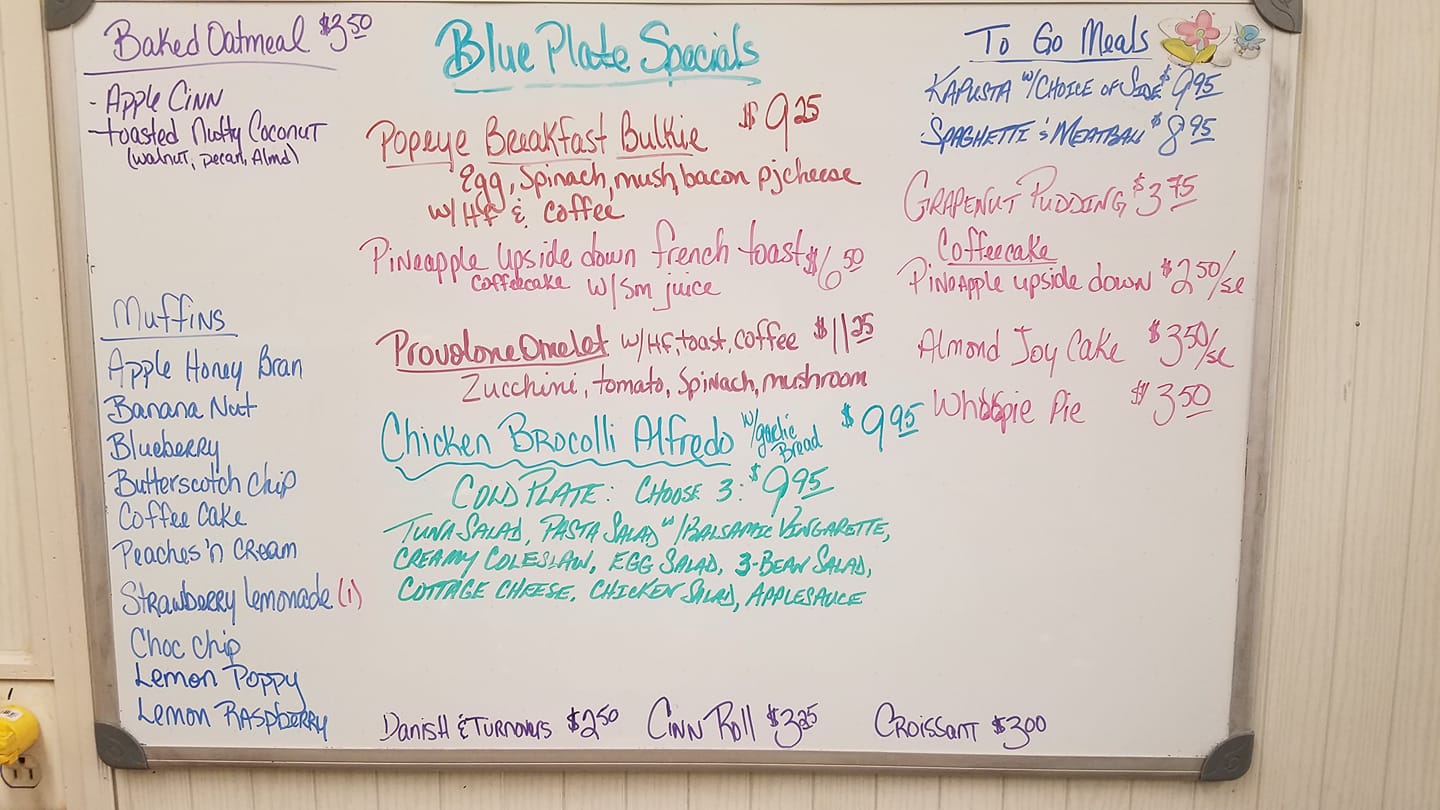 Baked Oatmeal $3.50
- Apple Cinn
- toasted Nutty Coconut
(walnut, pecan, Almd)
Muffins
Apple Honey Bran
Banana Nut
Blueberry
Butterscotch Chip
Coffee Cake
Peaches 'n Cream
Strawberry Lemonade (1)
Choc Chip
Lemon Poppy
Lemon Raspberry
Blue Plate Specials
Popeye Breakfast Bulkie $9.25
Egg, Spinach, mush, bacon pjcheese
w/HF & Coffee
Pineapple upside down french toast $6.50
Coffeecake w/sm juice
Provolone Omelet w/HF, toast, coffee $11.25
Zucchini, tomato, Spinach, mushroom
Chicken Brocolli Alfredo w/garlic Bread $9.95
Cold Plate: Choose 3: $9.95
Tuna Salad, Pasta Salad w/Balsamic Vingarette,
Creamy Coleslaw, Egg Salad, 3-Bean Salad,
Cottage Cheese, Chicken Salad, Applesauce
Danish & Turnovers $2.50 Cinn Roll $3.25 Croissant $3.00
To Go Meals
Kapusta w/Choice of Side $9.95
Spaghetti & Meatball $8.95
Grapenut Pudding $3.75
Coffeecake
Pineapple upside down $2.50/se
Almond Joy Cake $3.50/se
Whoopie Pie $3.50